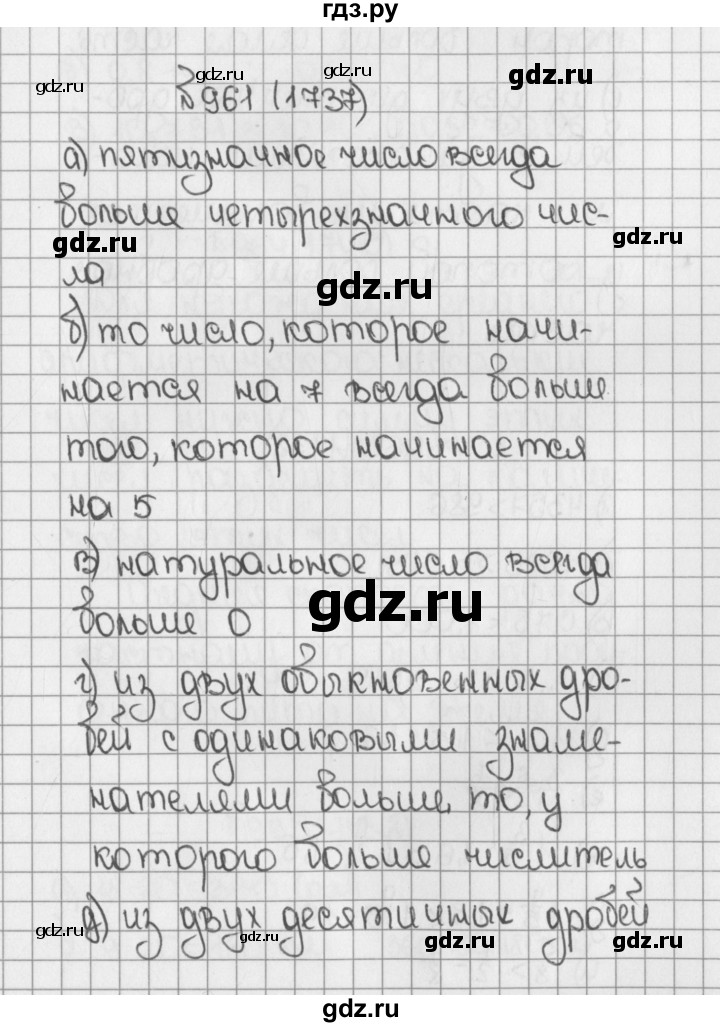 гдз.ру
gdz.ru gdz.ru gdz.ru
№961 (1737)
а) пятизначное число всегда
gdz.ru gdz.ru
больше четырехзначного чис-
gdz.ru
ла
gdz.ru
б) то число, которое начи-
нается на 7 всегда больше
того, которое начинается
на 5
в) натуральное число всегда
gdz.ru
больше 0
г) из двух обыкновенных дро-
бей с одинаковыми знаме-
нателями больше то, у
которого больше числитель
д) из двух десятичных дробей
gdz.ru gdz.ru gdz.ru
gdz.ru